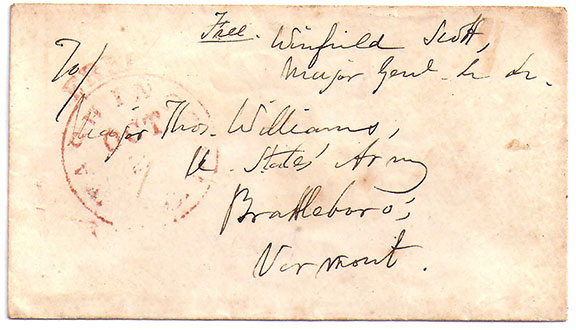 Free.
Winfield Scott,
Major Genl.
To/
Major Thos. Williams,
U. States' Army
Brattleboro',
Vermont.
WASHINGTON
OCT